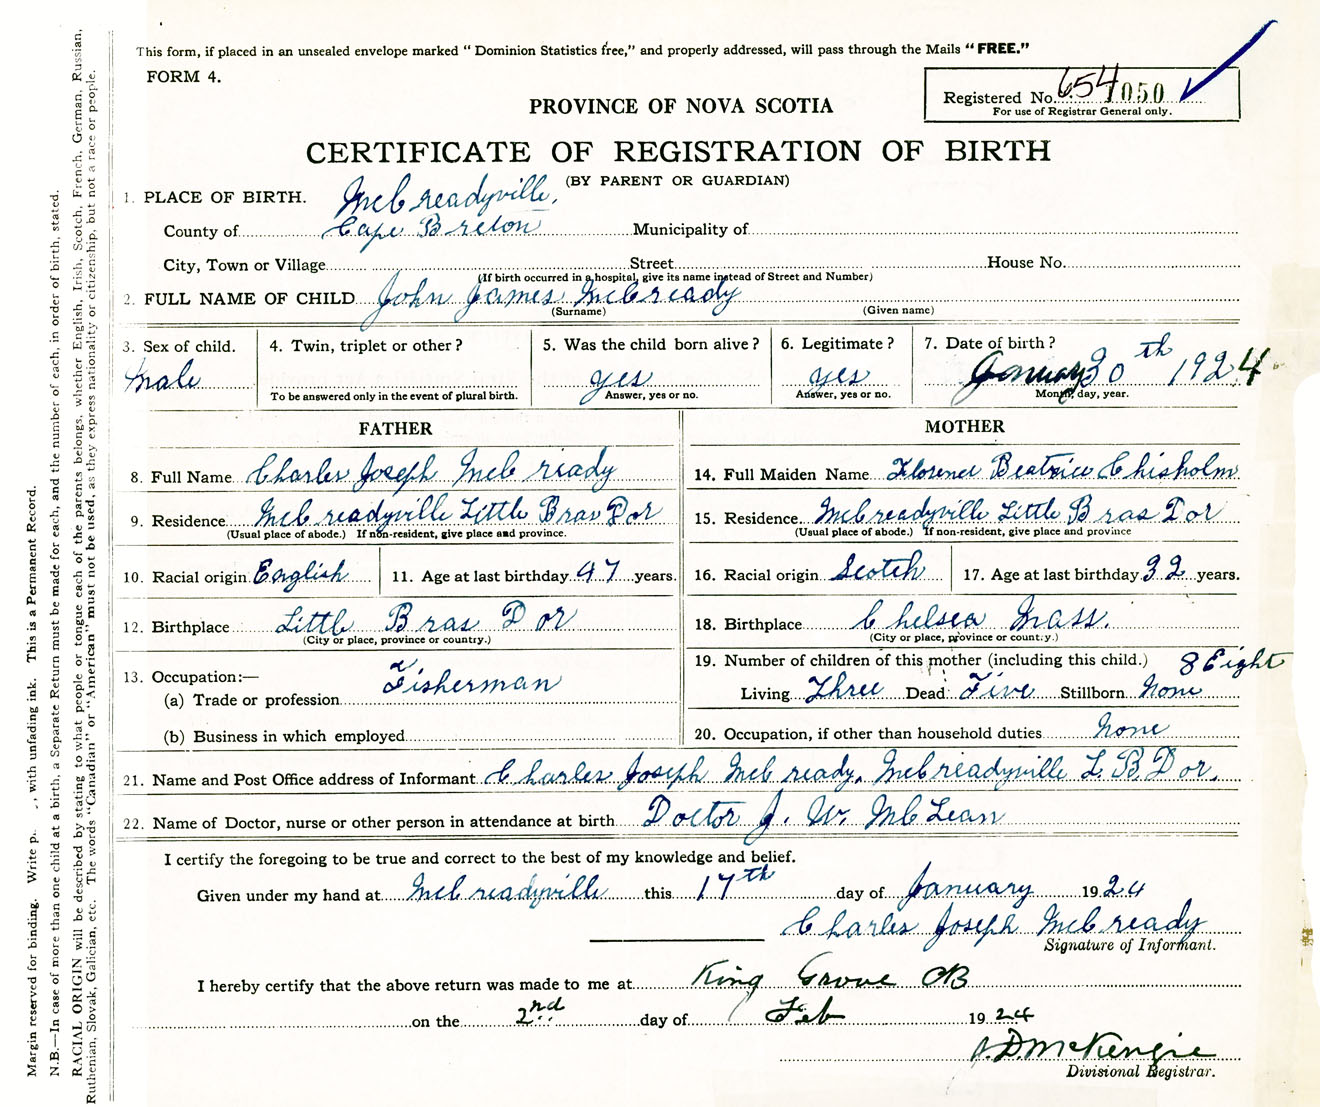 This form, if placed in an unsealed envelope marked "Dominion Statistics free," and properly addressed, will pass through the Mails "FREE."
FORM 4.
Registered No. 654 1050
For use of Registrar General only.
PROVINCE OF NOVA SCOTIA
CERTIFICATE OF REGISTRATION OF BIRTH
(BY PARENT OR GUARDIAN)
1. PLACE OF BIRTH. McCreadyville,
County of Cape Breton Municipality of
City, Town or Village Street House No.
(If birth occurred in a hospital, give its name instead of Street and Number)
2. FULL NAME OF CHILD John James McCready
(Surname) (Given name)
3. Sex of child. 4. Twin, triplet or other? 5. Was the child born alive? 6. Legitimate? 7. Date of birth?
Male yes yes January 30th 1924
To be answered only in the event of plural birth. Answer, yes or no. Answer, yes or no. Month, day, year.
FATHER MOTHER
8. Full Name Charles Joseph McCready 14. Full Maiden Name Florence Beatrice Chisholm
9. Residence McCreadyville Little Bras Dor 15. Residence McCreadyville Little Bras Dor
(Usual place of abode.) If non-resident, give place and province. (Usual place of abode.) If non-resident, give place and province
10. Racial origin English 11. Age at last birthday 47 years. 16. Racial origin Scotch 17. Age at last birthday 32 years.
12. Birthplace Little Bras Dor 18. Birthplace Chelsea Mass.
(City or place, province or country.) (City or place, province or county.)
13. Occupation:— 19. Number of children of this mother (including this child.) 8 Eight
(a) Trade or profession Fisherman Living Three Dead Five Stillborn None
(b) Business in which employed 20. Occupation, if other than household duties None
21. Name and Post Office address of Informant Charles Joseph McCready, McCreadyville L. B Dor,
22. Name of Doctor, nurse or other person in attendance at birth Doctor J. W. McLean
I certify the foregoing to be true and correct to the best of my knowledge and belief.
Given under my hand at McCreadyville this 17th day of January 1924
Charles Joseph McCready
Signature of Informant.
I hereby certify that the above return was made to me at King Grove CB
on the 2nd day of Feb 1924
J. D. McKenzie
Divisional Registrar.
Margin reserved for binding. Write p , with unfading ink. This is a Permanent Record.
N.B.—In case of more than one child at a birth, a Separate Return must be made for each, and the number of each, in order of birth, stated.
RACIAL ORIGIN will be described by stating to what people or tongue each of the parents belongs, whether English, Irish, Scotch, French, German, Russian,
Ruthenian, Slovak, Galician, etc. The words "Canadian" or "American" must not be used, as they express nationality or citizenship, but not a race or people.